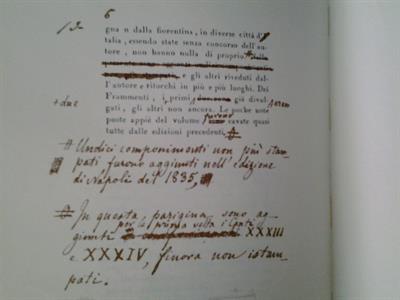 12 6
gna n dalla fiorentina, in diverse città d'I
talia, essendo state senza concorso dell'au-
tore, non hanno nulla di proprio.
e gli altri riveduti dal-
l'autore e ritocchi in più e più luoghi. Dei
+due Frammenti, i primi già divul-
gati, gli altri non ancora. Le poche note
poste appiè del volume furono cavate quasi
tutte dalle edizioni precedenti.
Undici componimenti non più stam-
pati furono aggiunti nell'edizione
di Napoli del 1835,
In questa parigina sono ag-
giunti per la prima volta i Canti XXXIII
e XXXIV, finora non istam-
pati.